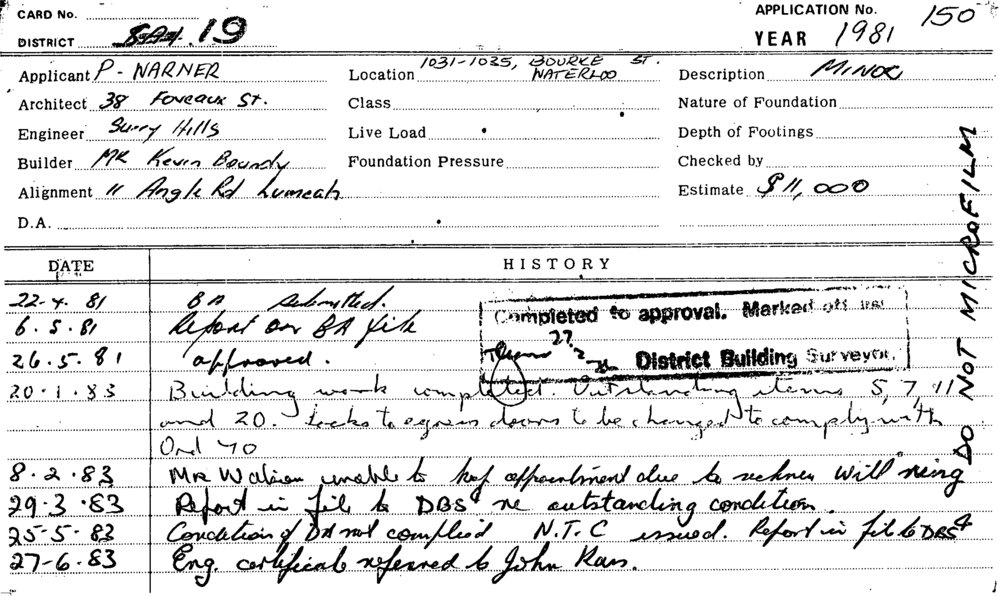 CARD No.
APPLICATION No. 150
DISTRICT 19
YEAR 1981
Applicant P. WARNER
Location 1031-1035, BOURKE ST. WATERLOO
Description MINOR
Architect 38 Foveaux St.
Class
Nature of Foundation
Engineer Surry Hills
Live Load
Depth of Footings
Builder MR Kevin Boundy
Foundation Pressure
Checked by
Alignment 11 Angle Rd Lumeah
Estimate $11,000
D.A.
DO NOT MICROFILM
DATE HISTORY
22-4.81 BA submitted.
6.5.81 Report on BA file
26.5.81 approved.
Completed to approval. Marked off
27.2
District Building Surveyor.
20.1.83 Building work completed. Outstanding items 5, 7, 11
and 20. Locks to egress doors to be changed to comply with
Ord 70
8.2.83 Mr unable to keep appointment due to sickness will ring
29.3.83 Report in file to DBS re outstanding condition.
25-5-83 Condition of BA not complied N.T.C issued. Report in file to DBS
27-6.83 Eng. certificate referred to John